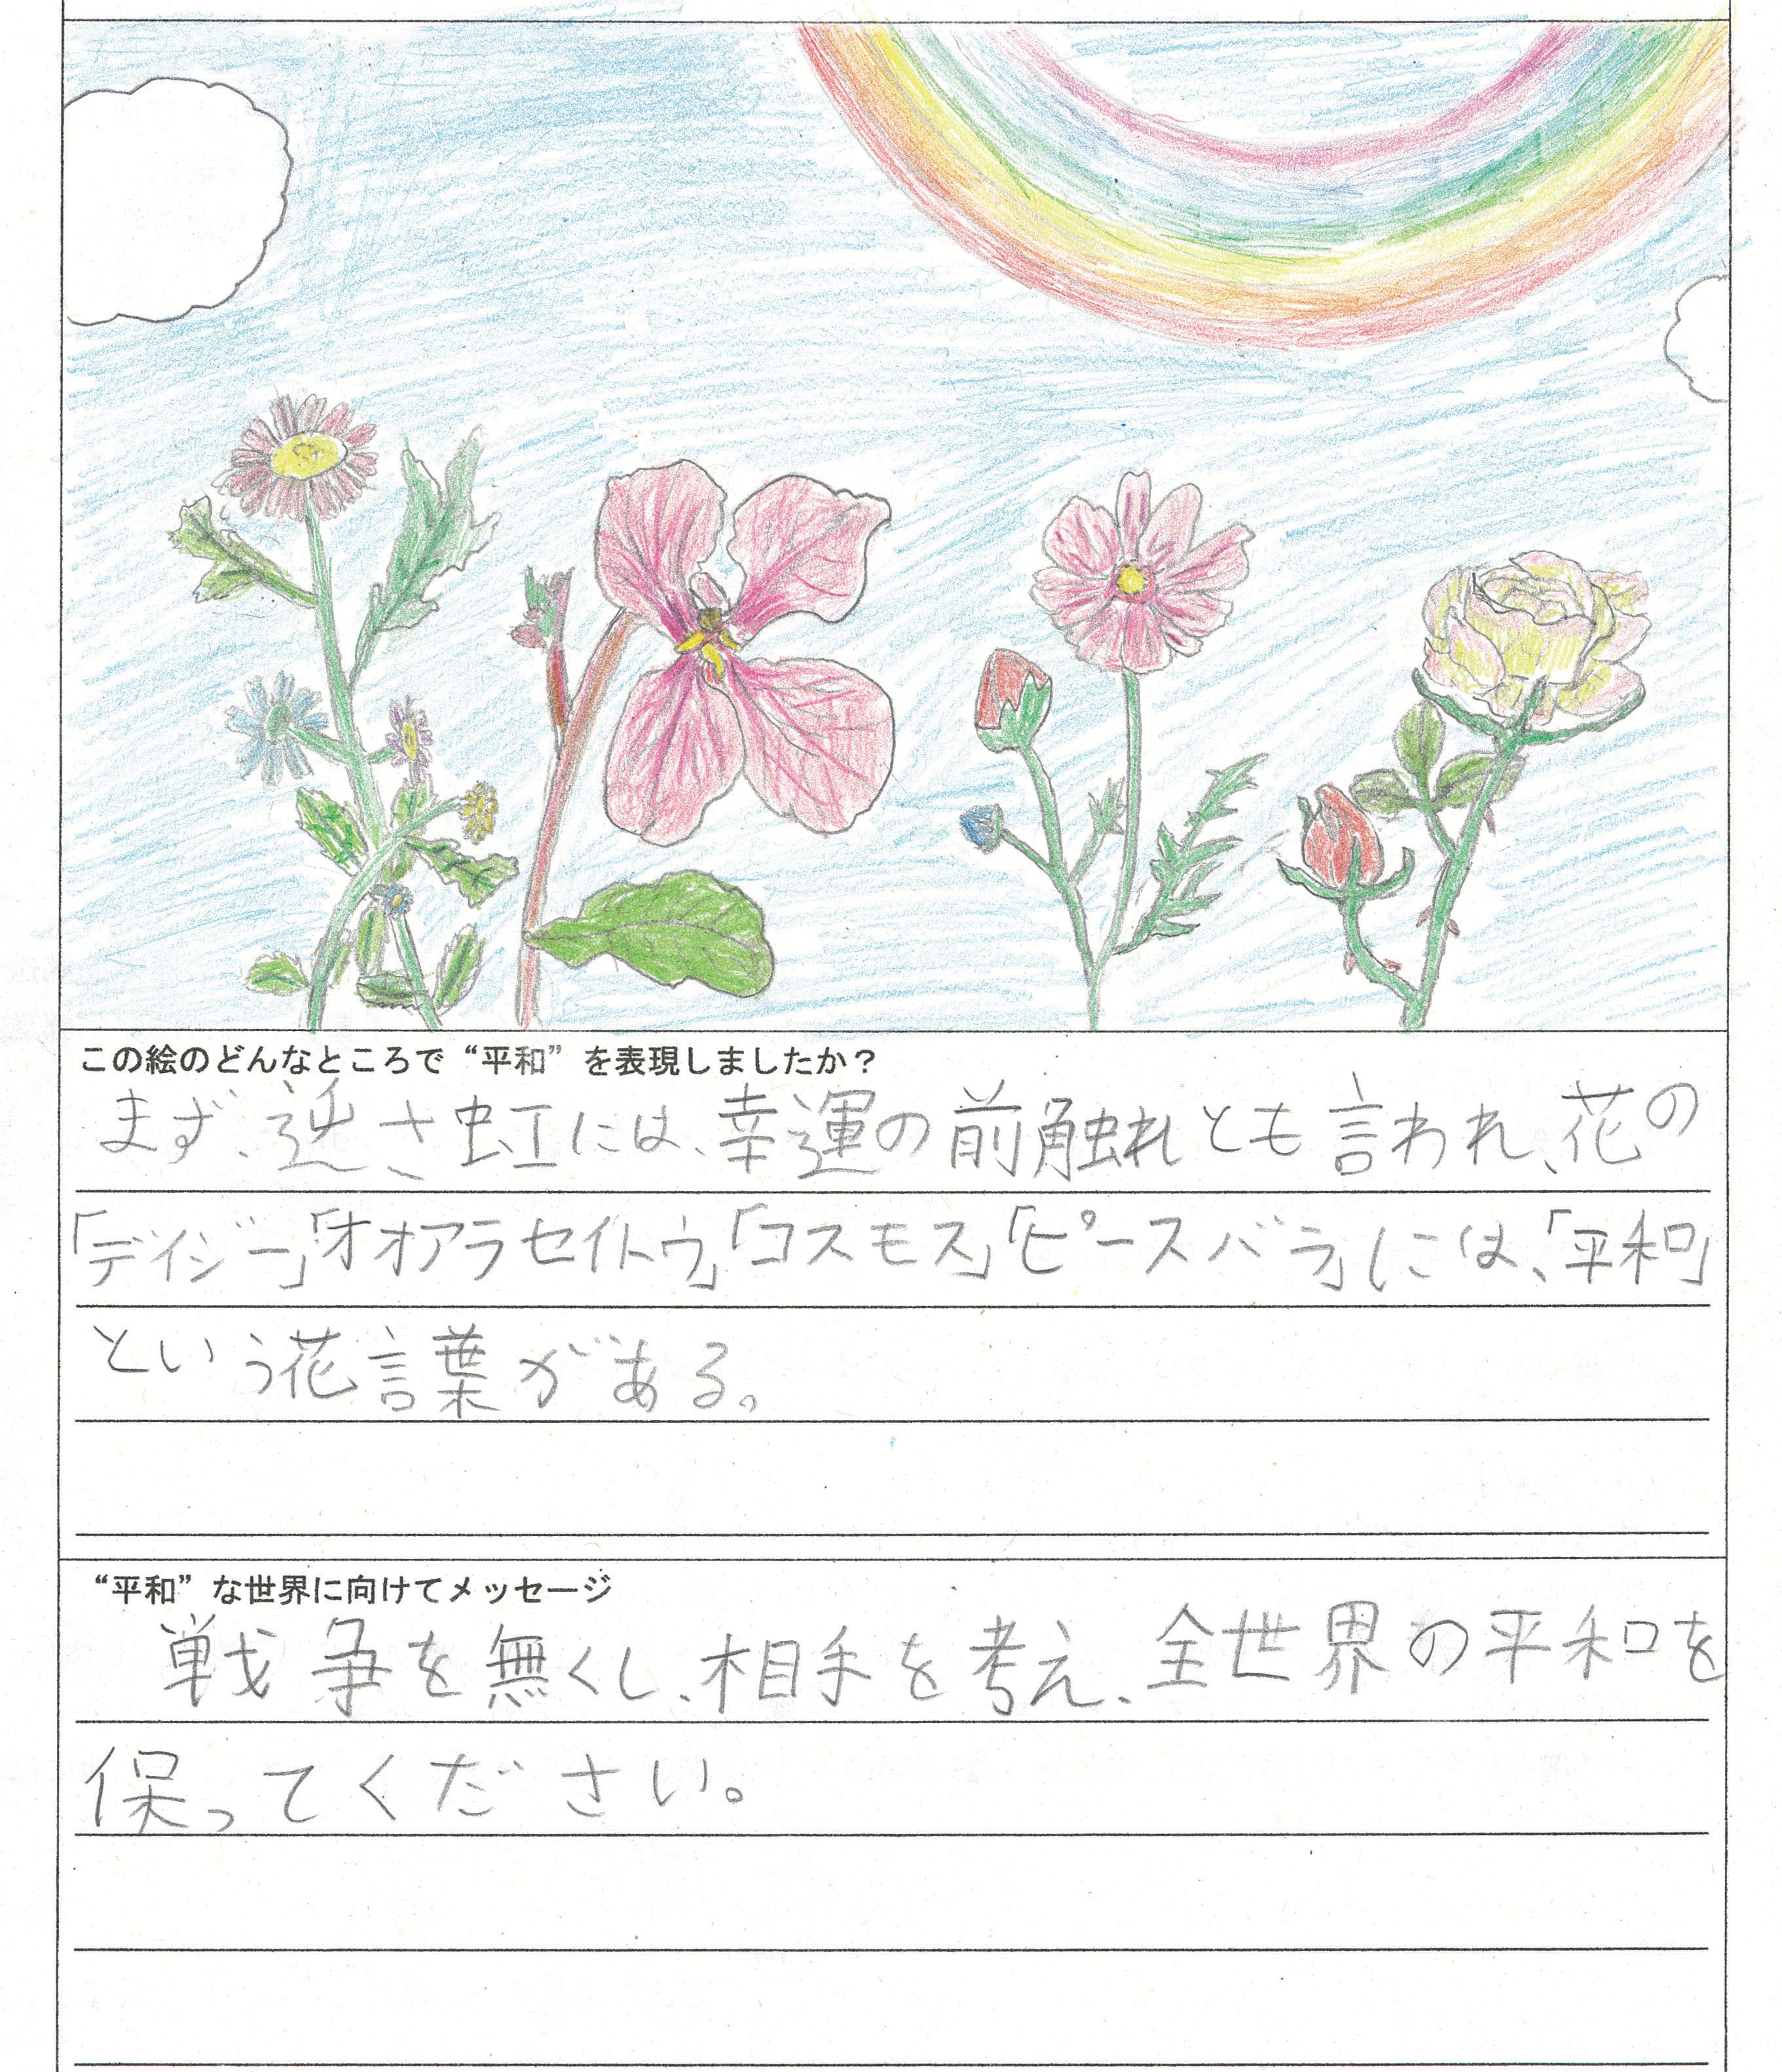 この絵のどんなところで“平和”を表現しましたか？
まず、逆さ虹には、幸運の前触れとも言われ、花の
「デイジー」「オオアラセイトウ」「コスモス」「ピースバラ」には、「平和」
という花言葉がある。
“平和”な世界に向けてメッセージ
戦争を無くし、相手を考え、全世界の平和を
保ってください。